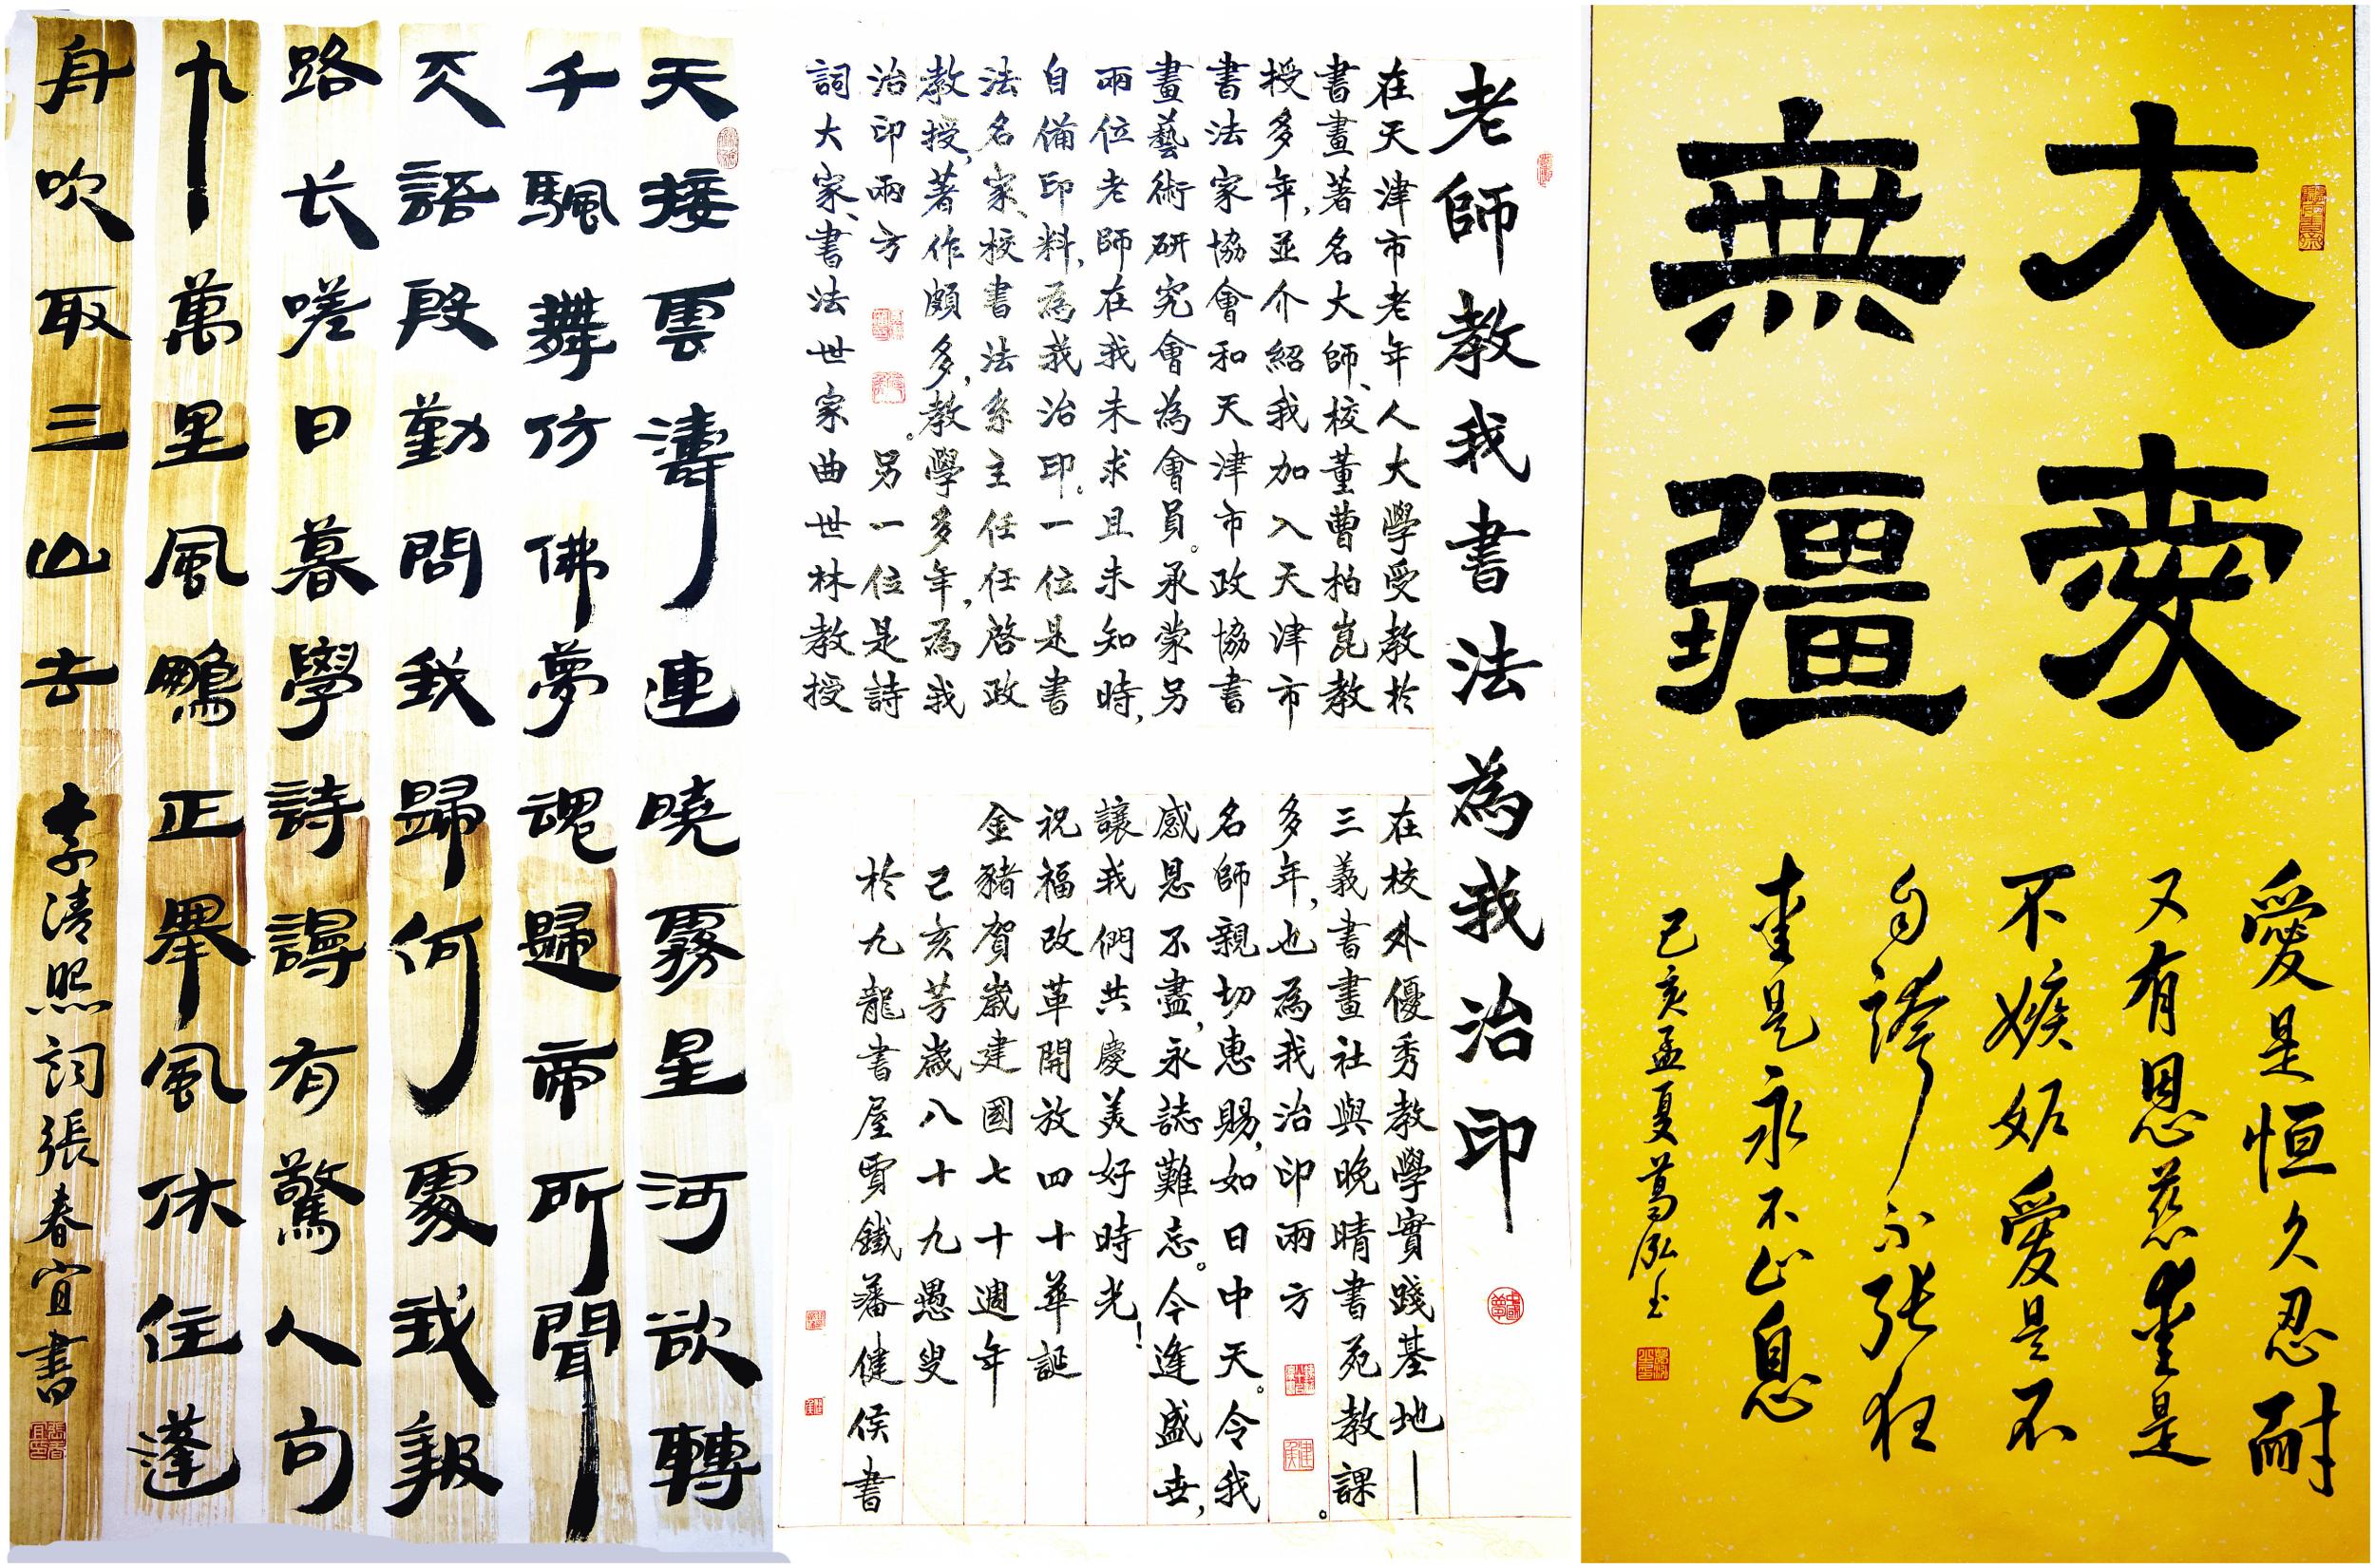 大愛
無疆
愛是恒久忍耐
又有恩慈愛是
不嫉妒愛是不
自誇不張狂
愛是永不止息
己亥孟夏葛泓
老師教我書法為我治印
中國夢
在天津市老年人大學受教於
書畫著名大師、校董曹柏崑教
授多年，並介紹我加入天津市
書法家協會和天津市政協書
畫藝術研究會為會員。承蒙另
兩位老師在我未求且未知時，
自備印料，為我治印。一位是書
法名家、校書法系主任任啓政
教授，著作頗多，教學多年，為我
治印兩方。另一位是詩
詞大家、書法世家曲世林教授
在校外優秀教學實踐基地—
三義書畫社與晚晴書苑教課
多年，也為我治印兩方。
名師親切惠賜，如日中天。令我
感恩不盡，永誌難忘。今逢盛世，
讓我們共慶美好時光！
祝福改革開放四十華誕
金豬賀歲建國七十週年
己亥芳歲八十九愚叟
於九龍書屋賈鐵藩健侯書
天接雲濤連曉霧星河欲轉
千颿舞仿佛夢魂歸帝所聞
天語殷勤問我歸何處我報
路长嗟日暮學詩謾有驚人句
九萬里風鵬正舉風休住蓬
舟吹取三山去 李清照詞張春宜書
張春宜印